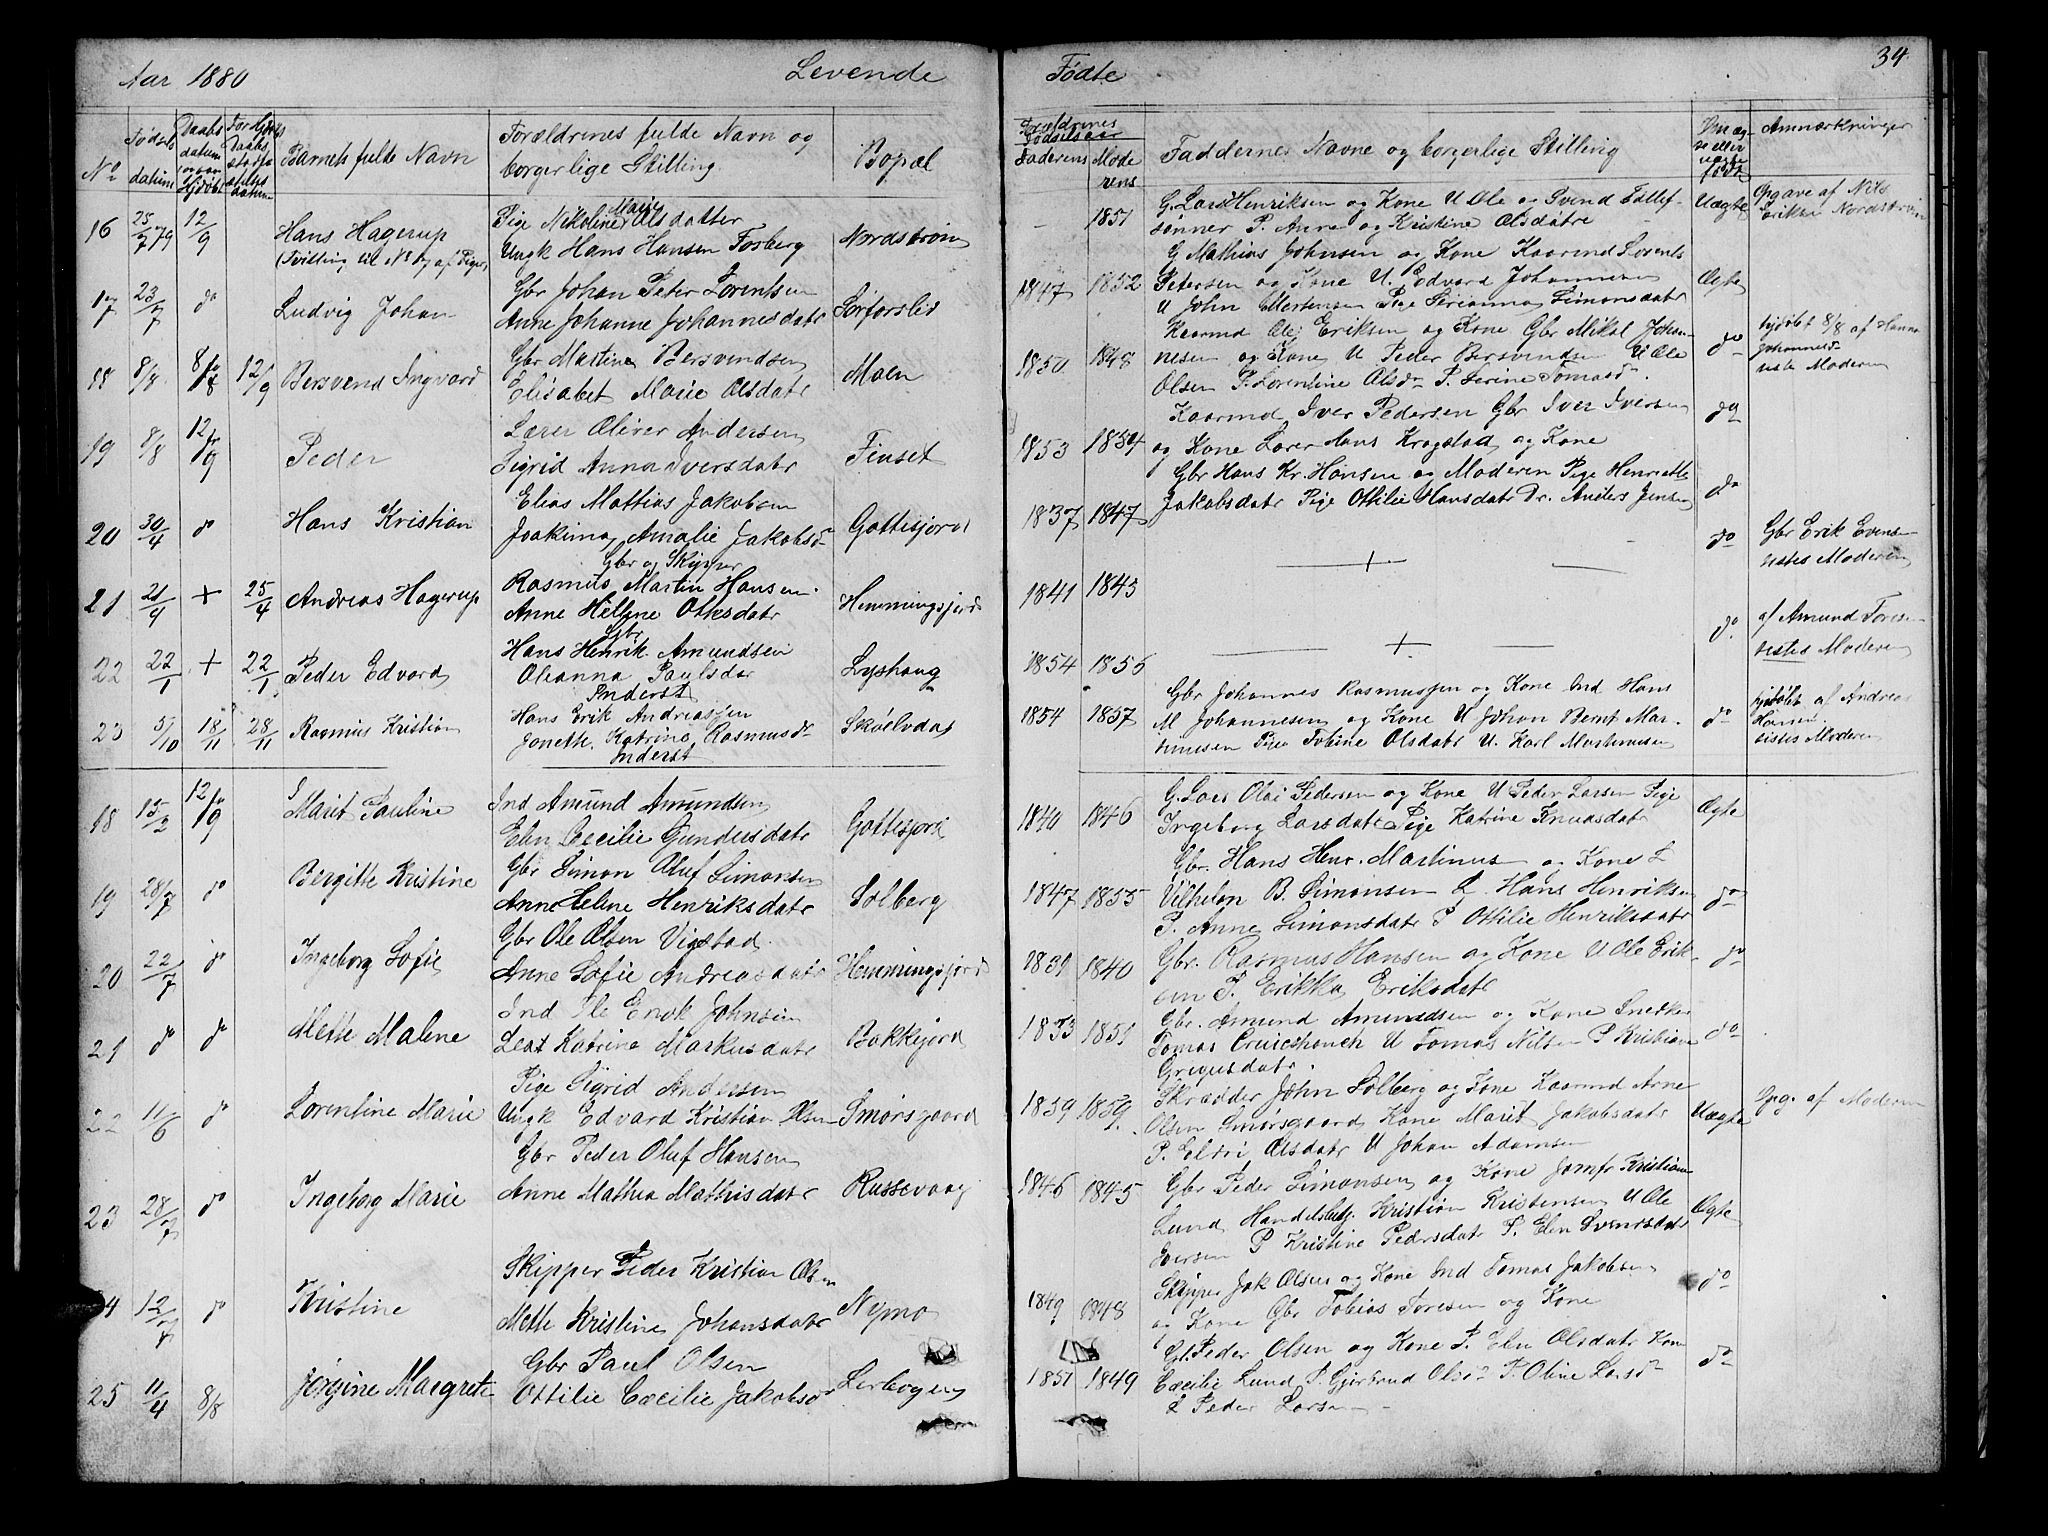 Aar 1880 Levende Fødte 34.
No Fødsels datum Daabs datum Barnets fulde Navn Forældrenes fulde Navn og borgerlige Stilling Bopæl
Forældrenes Fødselsaar Faderens Moderens Faddernes Navne og borgerlige Stilling Anmærkninger
16 25/7 79 12/9 Hans Hagerup Pige Nikoline Marie Olsdatter Nordstrøm
(Tvilling til No 17 af Piger) Ungk Hans Hansen Forberg
- 1851 G. Lars Henriksen og Kone U Ole og Svend Tollef- Uægte Opgave af Nils
sønner P. Anne og Kristine Olsdøtre Eriksen Nordstrøm
17 23/7 do Ludvig Johan Gbr Johan Peter Lorentsen Sørforslid
Anne Johanne Johannesdatr
G Mathias Johnsen og Kone Kaarmd Lorents
1847 1852 Petersen og Kone U. Edvard Johannesen Ægte
U John Mortensen Pige Serianna Simonsdatr
18 8/8 8/8 12/9 Bersvend Ingvard Gbr Martin Bersvendsen Moen
Elisabet Marie Olsdatr
Kaarmd Ole Eriksen og Kone Gbr Mikal Johan- do hjdøbt 8/8 af Hanna
1850 1848 nesen og Kone U Peder Bersvendsen U Ole Johannesdr
Olsen P. Lorentine Olsdr P. Serine Tomasdr. viste Moderen
19 8/8 12/9 Peder Lærer Oliver Andersen Finset
Sigrid Anna Iversdatr
Kaarmd Iver Pedersen Gbr Iver Iversen do
1853 1854 og Kone Lærer Hans Krogstad og Kone
20 30/4 do Hans Kristian Elias Mathias Jakobsen Gottesjord
Joakima Amalie Jakobsdr
Gbr Hans Kr. Hansen og Moderen Pige Henriette do
1837 1847 Jakobsdatr Pige Ottilie Hansdatr Dr. Anders Jensen
21 21/4 + 25/4 Andreas Hagerup Gbr og Skipper
Rasmus Martin Hansen Hemmingsjord
Anne Hellene Otksdatr
1841 1845 + do Gbr Erik Evensen
vistes Moderen
22 22/1 + 22/1 Peder Edvard Gbr
Hans Henrik Amundsen Lyshaug
Oleanna Paulsdr
Inderst
1854 1856 + do af Amund Tores-
vistes Moderen
23 5/10 18/11 28/11 Rasmus Kristian Hans Erik Andreassen Skøelvdal
Jonette Katrine Rasmusdr
Inderst
Gbr Johannes Rasmussen og Kone Ind Hans
1854 1857 M Johannesen og Kone U Johan Bernt Mar- do hjdøbt af Andreas
tinusen Pige Tobine Olsdatr U. Karl Martinusen Hansen
vistes Moderen
18 15/2 12/9 Marit Pauline Ind Amund Amundsen Gottesjord
Elen Cecilie Gundersdatr
1840 1846 G. Lars Olai Pedersen og Kone U Peder Larsen Pige Ægte
Ingeborg Larsdatr Pige Katrine Knudsdatr
19 28/7 do Bergitte Kristine Gbr Simon Oluf Simonsen Solberg
Anne Heline Henriksdatr
Gbr. Hans Henr. Martinus og Kone
1847 1855 Vilhelm B. Simonsen Hans Henriksen do
P. Anne Simonsdatr P Ottilie Henriksdatr
20 22/7 do Ingeborg Sofie Gbr Ole Olsen Vigstad Hemmingsjord
Anne Sofie Andreasdatr
1839 1840 Gbr. Rasmus Hansen og Kone U Ole Erik- do
sen P. Erikka Eriksdatr
21 do do Mette Malene Ind Ole Enok Johnsen Bakkejord
Leat Katrine Markusdatr
1833 1851 Gbr. Amund Amundsen og Kone Snedker do
Tomas Cruicshanch U Tomas Nilsen P Kristiane
Gregusdatr
22 11/6 do Lorentine Marie Pige Sigrid Andersen Smørsgaard
Ungk Edvard Kristian Olsen
1859 1859 Skrædder John Solberg og Kone Kaarmd Arne Uægte Opg. af Moderen
Olsen Smørsgaard Kone Marit Jakobsdatr
P. Eldri Olsdatr U Johan Adamsen
23 28/7 do Ingeborg Marie Gbr Peder Oluf Hansen Russevaag
Anne Mathea Mathisdatr
1846 1845 Gbr Peder Simonsen og Kone Jomfr Kristiane
Lund Handelsbetj. Kristian Kristensen U Ole Ægte
Iversen P Kristine Pedersdatr P. Elen Svendsdatr
24 12/7 do Kristine Skipper Peder Kristian Olsen Nymo
Mette Kristine Johansdatr
1849 1848 Skipper Jak Olsen og Kone Ind Tomas Jakobsen do
og Kone Gbr Tobias Toresen og Kone
25 11/4 8/8 Jørgine Margrete Gbr Paul Olsen Lerbogen
Ottilie Cæcilie Jakobsdr
1851 1849 G. Peder Olsen og Kone P. Elen Olsdatr Kone do
Cæcilie Lund P. Gjertrud Olsdr P. Oline Larsdr
Peder Larsen